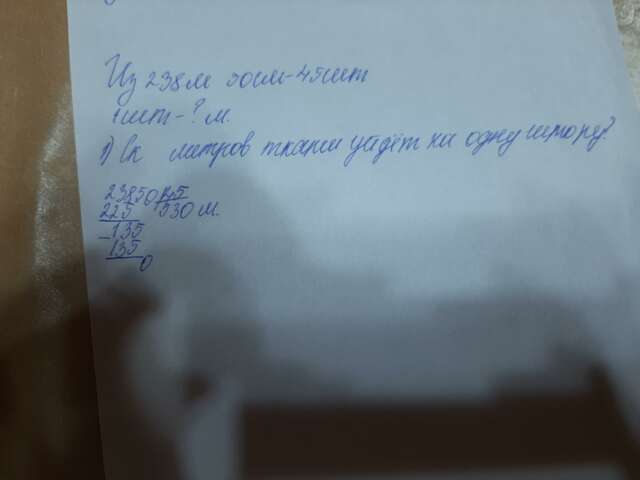 Из 238м 50см-45шт
1шт-? м.
1) Ск метров ткани уйдёт на одну штору?
23850 45
225 530 м.
-135
135
0